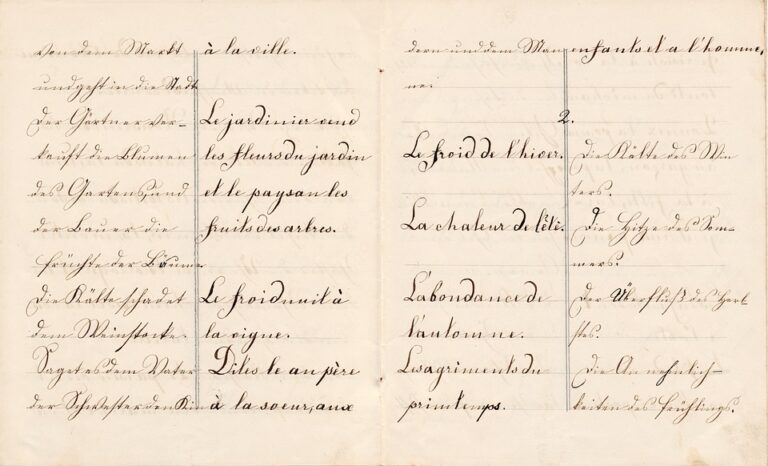 von dem Markt
und geht in die Stadt
Der Gärtner ver-
kauft die Blumen
des Gartens, und
der Bauer die
früchte der Bäume.
Die Kälte schadet
dem Weinstocke.
Saget es dem Vater
der Schwester den Kin
à la ville.
Le jardinier vend
les fleurs du jardin
et le paysan les
fruits des arbres.
Le froid nuit à
la vigne.
Dites le au père
à la soeur, aux
dern und dem Man
ne.
enfants et a l'homme,
2.
Le froid de l'hiver.
La chaleur de l'été.
L'abondance de
l'automne.
Les agréments du
printemps.
Die Kälte des Win
ters.
Die Hitze des Som-
mers.
Der Überfluß des Herb
stes.
Die Annehmlich-
keiten des frühlings.